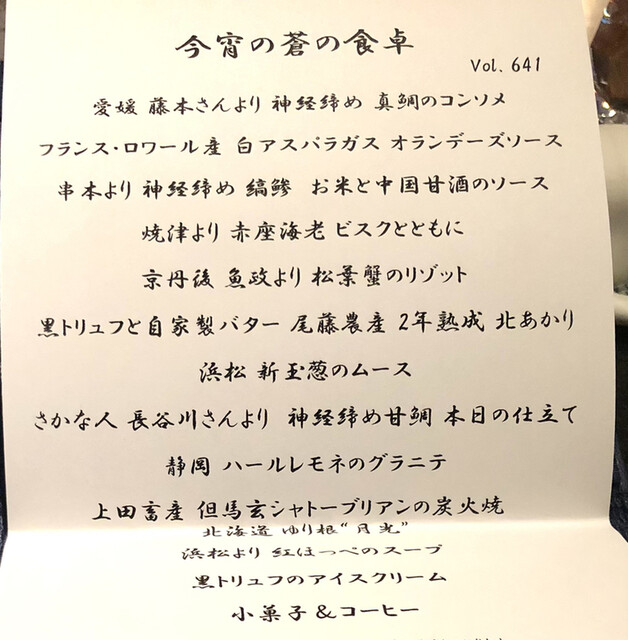 今宵の蒼の食卓
Vol. 641
愛媛 藤本さんより 神経締め 真鯛のコンソメ
フランス・ロワール産 白アスパラガス オランデーズソース
串本より 神経締め 縞鯵 お米と中国甘酒のソース
焼津より 赤座海老 ビスクとともに
京丹後 魚政より 松葉蟹のリゾット
黒トリュフと自家製バター 尾藤農産 2年熟成 北あかり
浜松 新玉葱のムース
さかな人 長谷川さんより 神経締め甘鯛 本日の仕立て
静岡 ハールレモネのグラニテ
上田畜産 但馬玄シャトーブリアンの炭火焼
北海道 ゆり根“月光”
浜松より 紅ほっぺのスープ
黒トリュフのアイスクリーム
小菓子&コーヒー